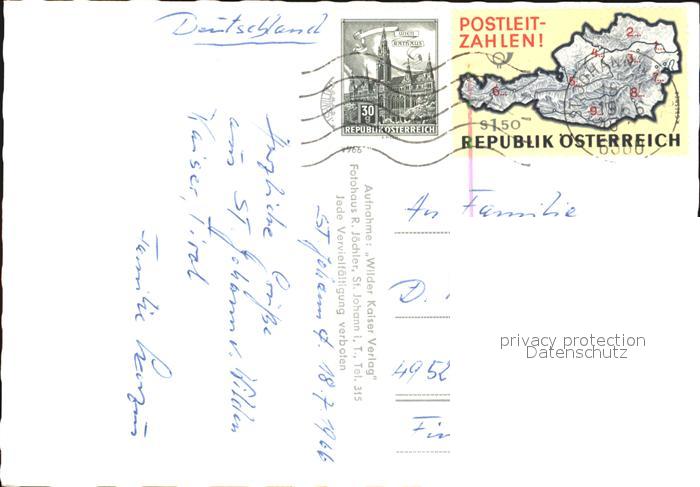 Deutschland
WIEN
RATHAUS
30 g
REPUBLIK ÖSTERREICH
POSTLEIT-
ZAHLEN!
2...
1...
4...
3...
7...
5...
6...
8...
9...
S 1.50
REPUBLIK ÖSTERREICH
1966
St. Johann, d. 18.7.1966
Herzliche Grüße
aus St. Johann u. Wilden
Kaiser, Tirol
Familie
Aufnahme: „Wilder Kaiser Verlag"
Fotohaus R. Jöchler, St. Johann i. T., Tel. 315
Jede Vervielfältigung verboten
An Familie
D.
4952
privacy protection
Datenschutz